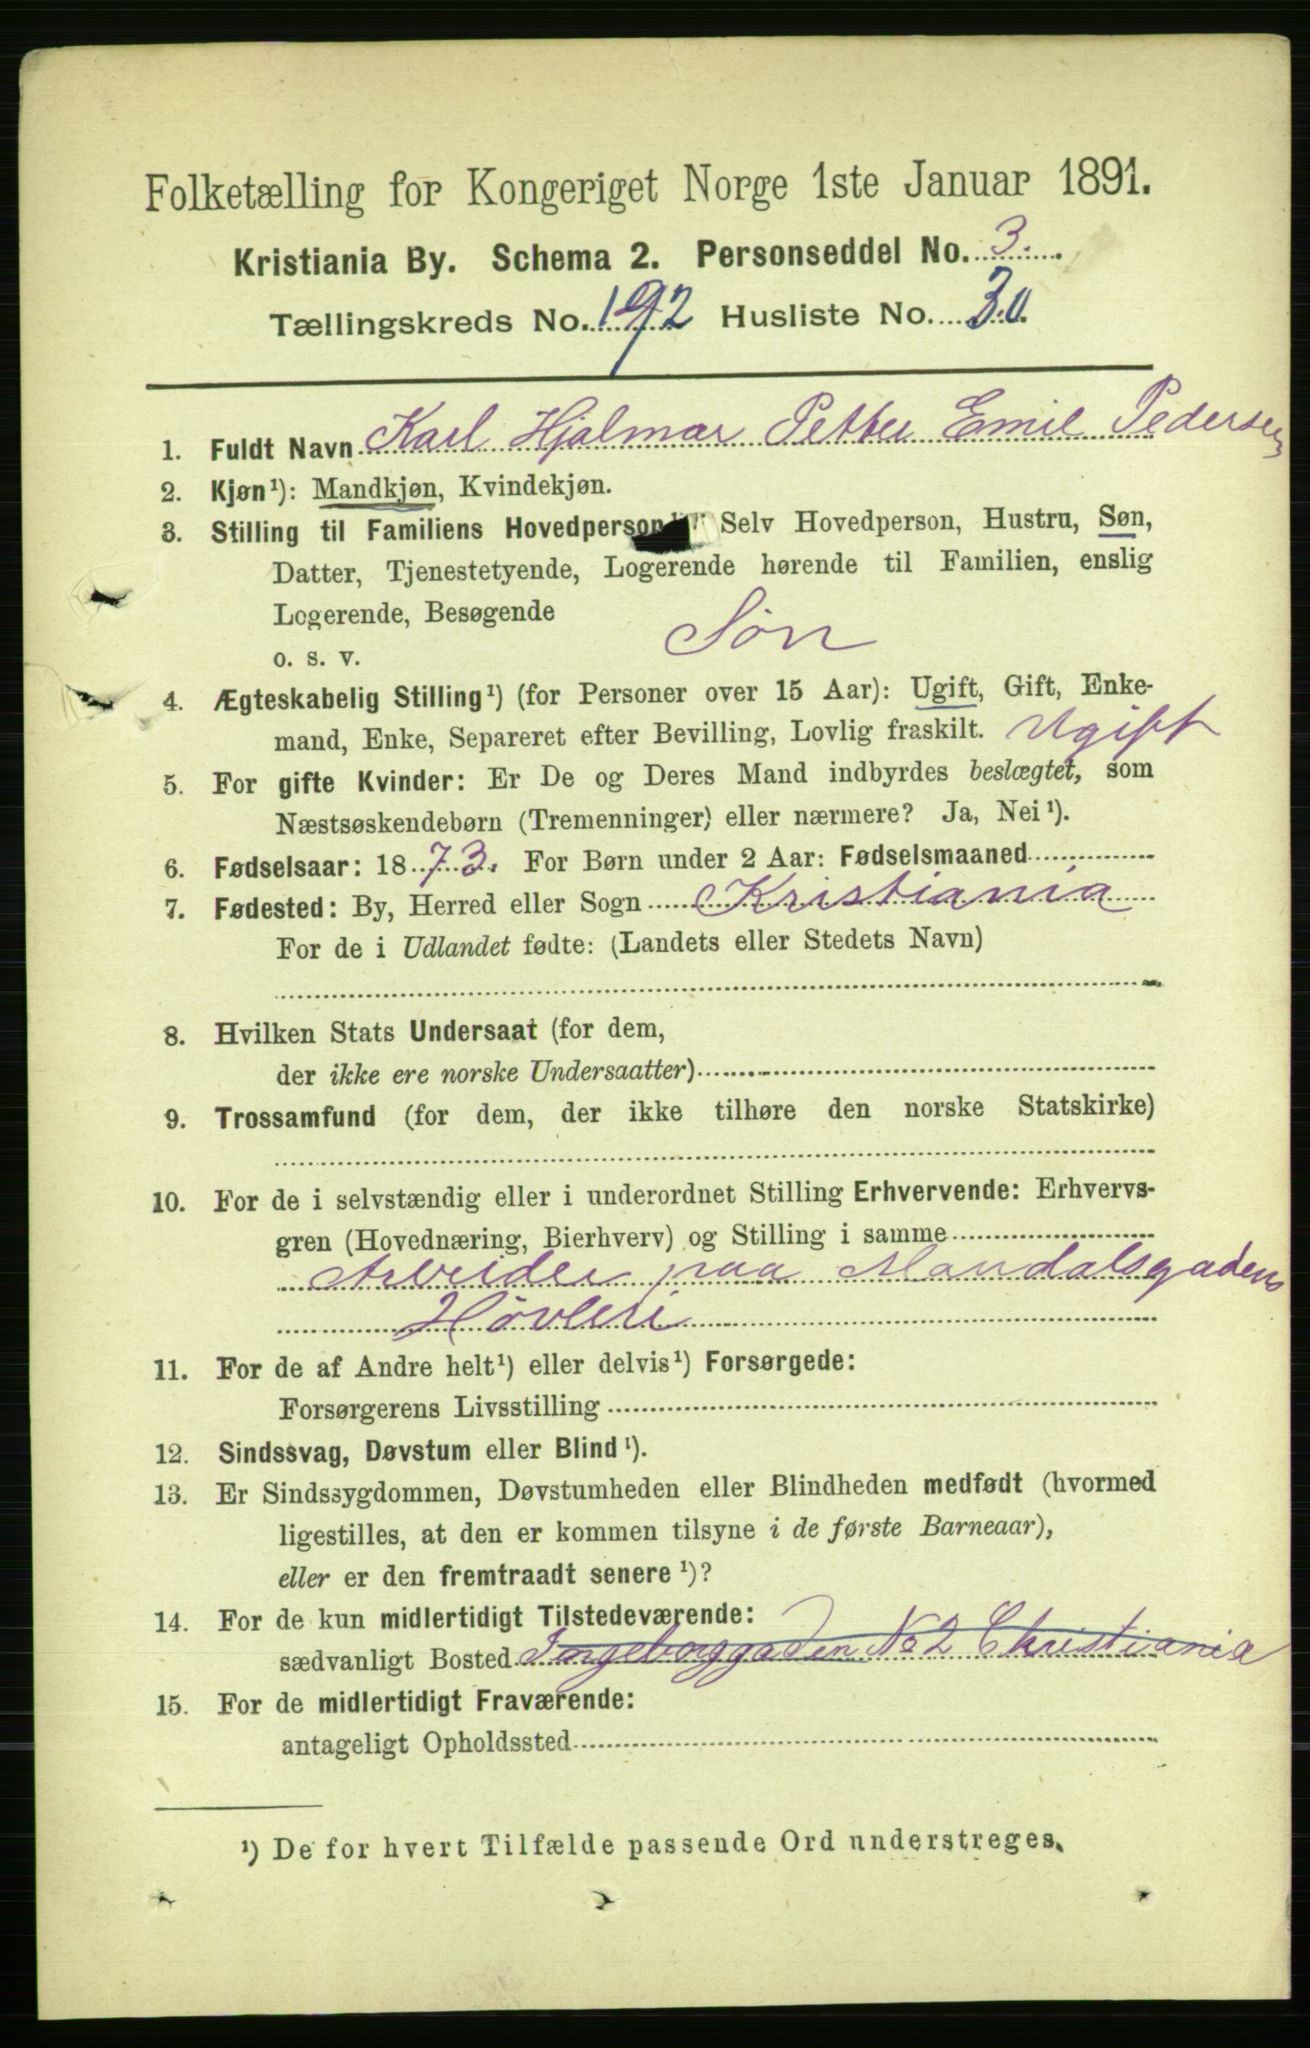 Folketælling for Kongeriget Norge 1ste Januar 1891.
Kristiania By. Schema 2. Personseddel No. 3.
Tællingskreds No. 192 Husliste No. 30.
1. Fuldt Navn Karl Hjalmar Petter Emil Pedersen
2. Kjøn¹): Mandkjøn, Kvindekjøn.
3. Stilling til Familiens Hovedperson Selv Hovedperson, Hustru, Søn,
Datter, Tjenestetyende, Logerende hørende til Familien, enslig
Logerende, Besøgende
o. s. v. Søn
4. Ægteskabelig Stilling¹) (for Personer over 15 Aar): Ugift, Gift, Enke-
mand, Enke, Separeret efter Bevilling, Lovlig fraskilt. Ugift
5. For gifte Kvinder: Er De og Deres Mand indbyrdes beslægtet, som
Næstsøskendebørn (Tremenninger) eller nærmere? Ja, Nei¹).
6. Fødselsaar: 1873. For Børn under 2 Aar: Fødselsmaaned
7. Fødested: By, Herred eller Sogn Kristiania
For de i Udlandet fødte: (Landets eller Stedets Navn)
8. Hvilken Stats Undersaat (for dem,
der ikke ere norske Undersaatter)
9. Trossamfund (for dem, der ikke tilhøre den norske Statskirke)
10. For de i selvstændig eller i underordnet Stilling Erhvervende: Erhvervs-
gren (Hovednæring, Bierhverv) og Stilling i samme
Arbeider paa Mandalsgadens
Høvleri
11. For de af Andre helt¹) eller delvis¹) Forsørgede:
Forsørgerens Livsstilling
12. Sindssvag, Døvstum eller Blind¹).
13. Er Sindssygdommen, Døvstumheden eller Blindheden medfødt (hvormed
ligestilles, at den er kommen tilsyne i de første Barneaar),
eller er den fremtraadt senere¹)?
14. For de kun midlertidigt Tilstedeværende:
sædvanligt Bosted Ingeborggaden No 2 Christiania
15. For de midlertidigt Fraværende:
antageligt Opholdssted
¹) De for hvert Tilfælde passende Ord understreges.